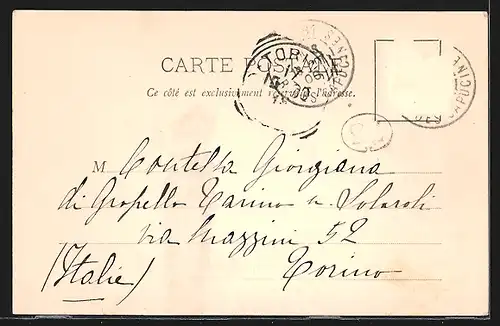 CARTE POSTALE
Ce côté est exclusivement réservé à l'adresse.
TORINO
CAPUCINES
CAPUCINES
M Contessa Giorgiana
di Gropello Tarino n. Solaroli
via Mazzini 52
(Italie) Torino